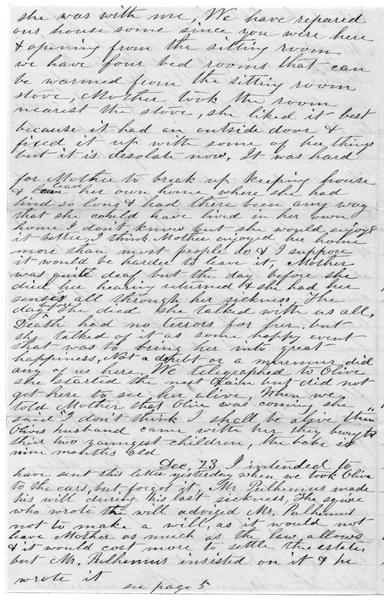 she was with me, We have repaired
our house some since you were here
& opening from the sitting room
we have four bed rooms that can
be warmed from the sitting room
stove, Mother took the room
nearest the stove, she liked it best
because it had an outside door &
fixed it up with some of her things
but it is desolate now, It was hard
for Mother to break up keeping house
& leave her own home where she had
lived so long & had there been any way
that she could have lived in her own
home I don't know but she would enjoyed
it better, I think Mother enjoyed her home
more than most people do & I suppose
it would be harder to leave it, Mother
was quite deaf but the day before she
died her hearing returned & she had her
senses all through her sickness. The
day before she died she talked with us all,
Death had no terrors for her. but
she talked of it as some happy event
that was to bring her into great
happiness, Not a doubt or a murmur did
any of us hear. We telegraphed to Olive
she started the next train but did not
get here to see her alive When we
told Mother that Olive was coming she
said "I don't think I shall be alive then"
Olives husband came with her they brought
their two youngest children, the babe is
nine months old
Dec, 23. I intended to
have sent this letter yesterday when we took Olive
to the cars, but forgot it. Mr. Pulhemus made
his will during his last sickness, The squire
who wrote the will advised Mr. Pulhemus
not to make a will, as it would not
leave Mother as much as the law allows
& it would cost more to settle the estate,
but Mr. Pulhemus insisted on it & he
wrote it
see page 5